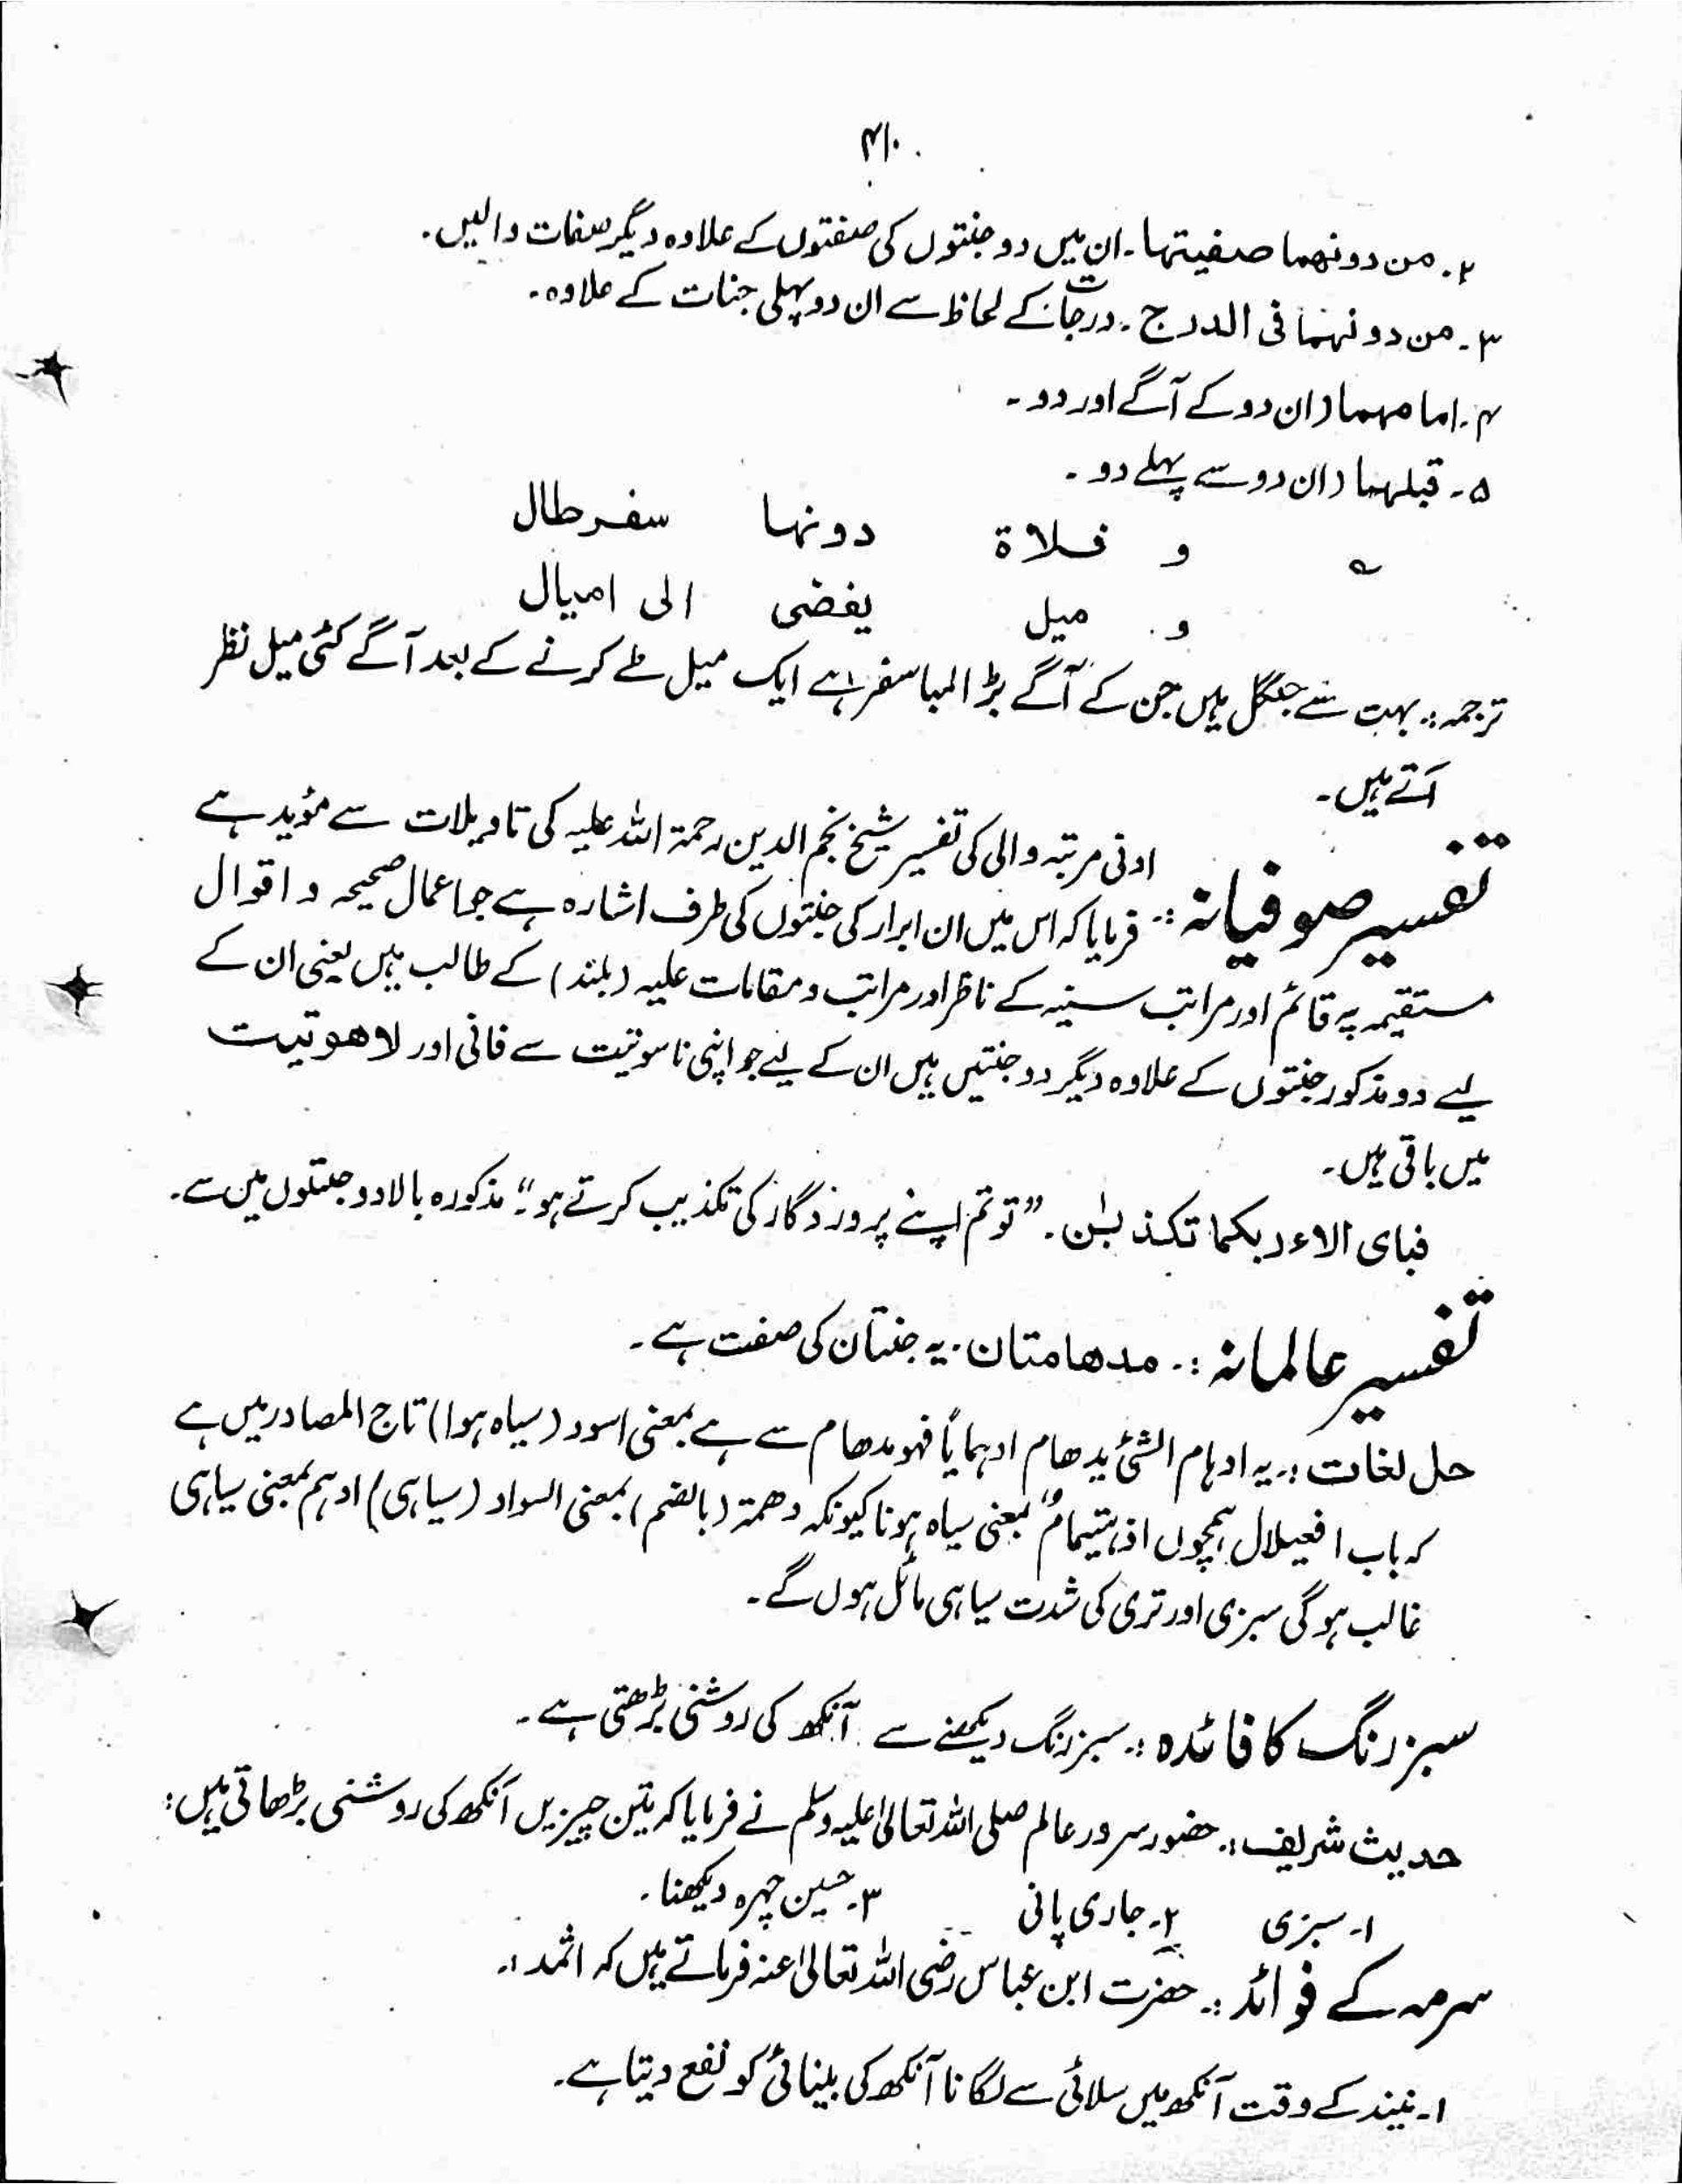 ۴۱۰
۲۔ من دونھما صفیتہا۔ ان میں دو جنتوں کی صفتوں کے علاوہ دیگر صفات والیں۔
۳۔ من دونہما فی الدرج۔ درجات کے لحاظ سے ان دو پہلی جنات کے علاوہ۔
۴۔ اما مہما (ان دو کے آگے اور دو۔
۵۔ قبلہما (ان دو سے پہلے دو۔
؎ و فلاۃ دونہا سفر طال
و میل یفضی الی امیال
ترجمہ:۔ بہت سے جنگل ہیں جن کے آگے بڑا لمبا سفر ہے ایک میل طے کرنے کے بعد آگے کئی میل نظر
آتے ہیں۔
تفسیر صوفیانہ:۔ ادنی مرتبہ والی کی تفسیر شیخ نجم الدین رحمۃ اللہ علیہ کی تاویلات سے مؤید ہے
فرمایا کہ اس میں ان ابرار کی جنتوں کی طرف اشارہ ہے جو اعمال صحیحہ و اقوال
مستقیمہ پہ قائم اور مراتب سنیہ کے ناظر اور مراتب و مقامات علیہ (بلند) کے طالب ہیں یعنی ان کے
لیے دو مذکور جنتوں کے علاوہ دیگر دو جنتیں ہیں ان کے لیے جو اپنی ناسوتیت سے فانی اور لاھوتیت
میں باقی ہیں۔
فبای الاء ربکما تکذبٰن۔ "تو تم اپنے پروردگار کی تکذیب کرتے ہو" مذکورہ بالا دو جنتوں میں سے۔
تفسیر عالمانہ:۔ مدھامتان۔ یہ جنتان کی صفت ہے۔
حل لغات:۔ یہ ادہام الشئ یدھام ادہماماً فہو مدھام سے ہے بمعنی اسود (سیاہ ہوا) تاج المصادر میں ہے
کہ باب افعیلال ہمچوں ادہیمام بمعنی سیاہ ہونا کیونکہ دھمۃ (بالضم) بمعنی السواد (سیاہی) ادہم بمعنی سیاہی
غالب ہوگی سبزی اور تری کی شدت سیاہی مائل ہوں گے۔
سبز رنگ کا فائدہ:۔ سبز رنگ دیکھنے سے آنکھ کی روشنی بڑھتی ہے۔
حدیث شریف:۔ حضور سرور عالم صلی اللہ تعالیٰ علیہ وسلم نے فرمایا کہ تین چیزیں آنکھ کی روشنی بڑھاتی ہیں:
۱۔ سبزی ۲۔ جاری پانی ۳۔ حسین چہرہ دیکھنا۔
سرمہ کے فوائد:۔ حضرت ابن عباس رضی اللہ تعالیٰ عنہ فرماتے ہیں کہ اثمد:۔
۱۔ نیند کے وقت آنکھ میں سلائی سے لگانا آنکھ کی بینائی کو نفع دیتا ہے۔